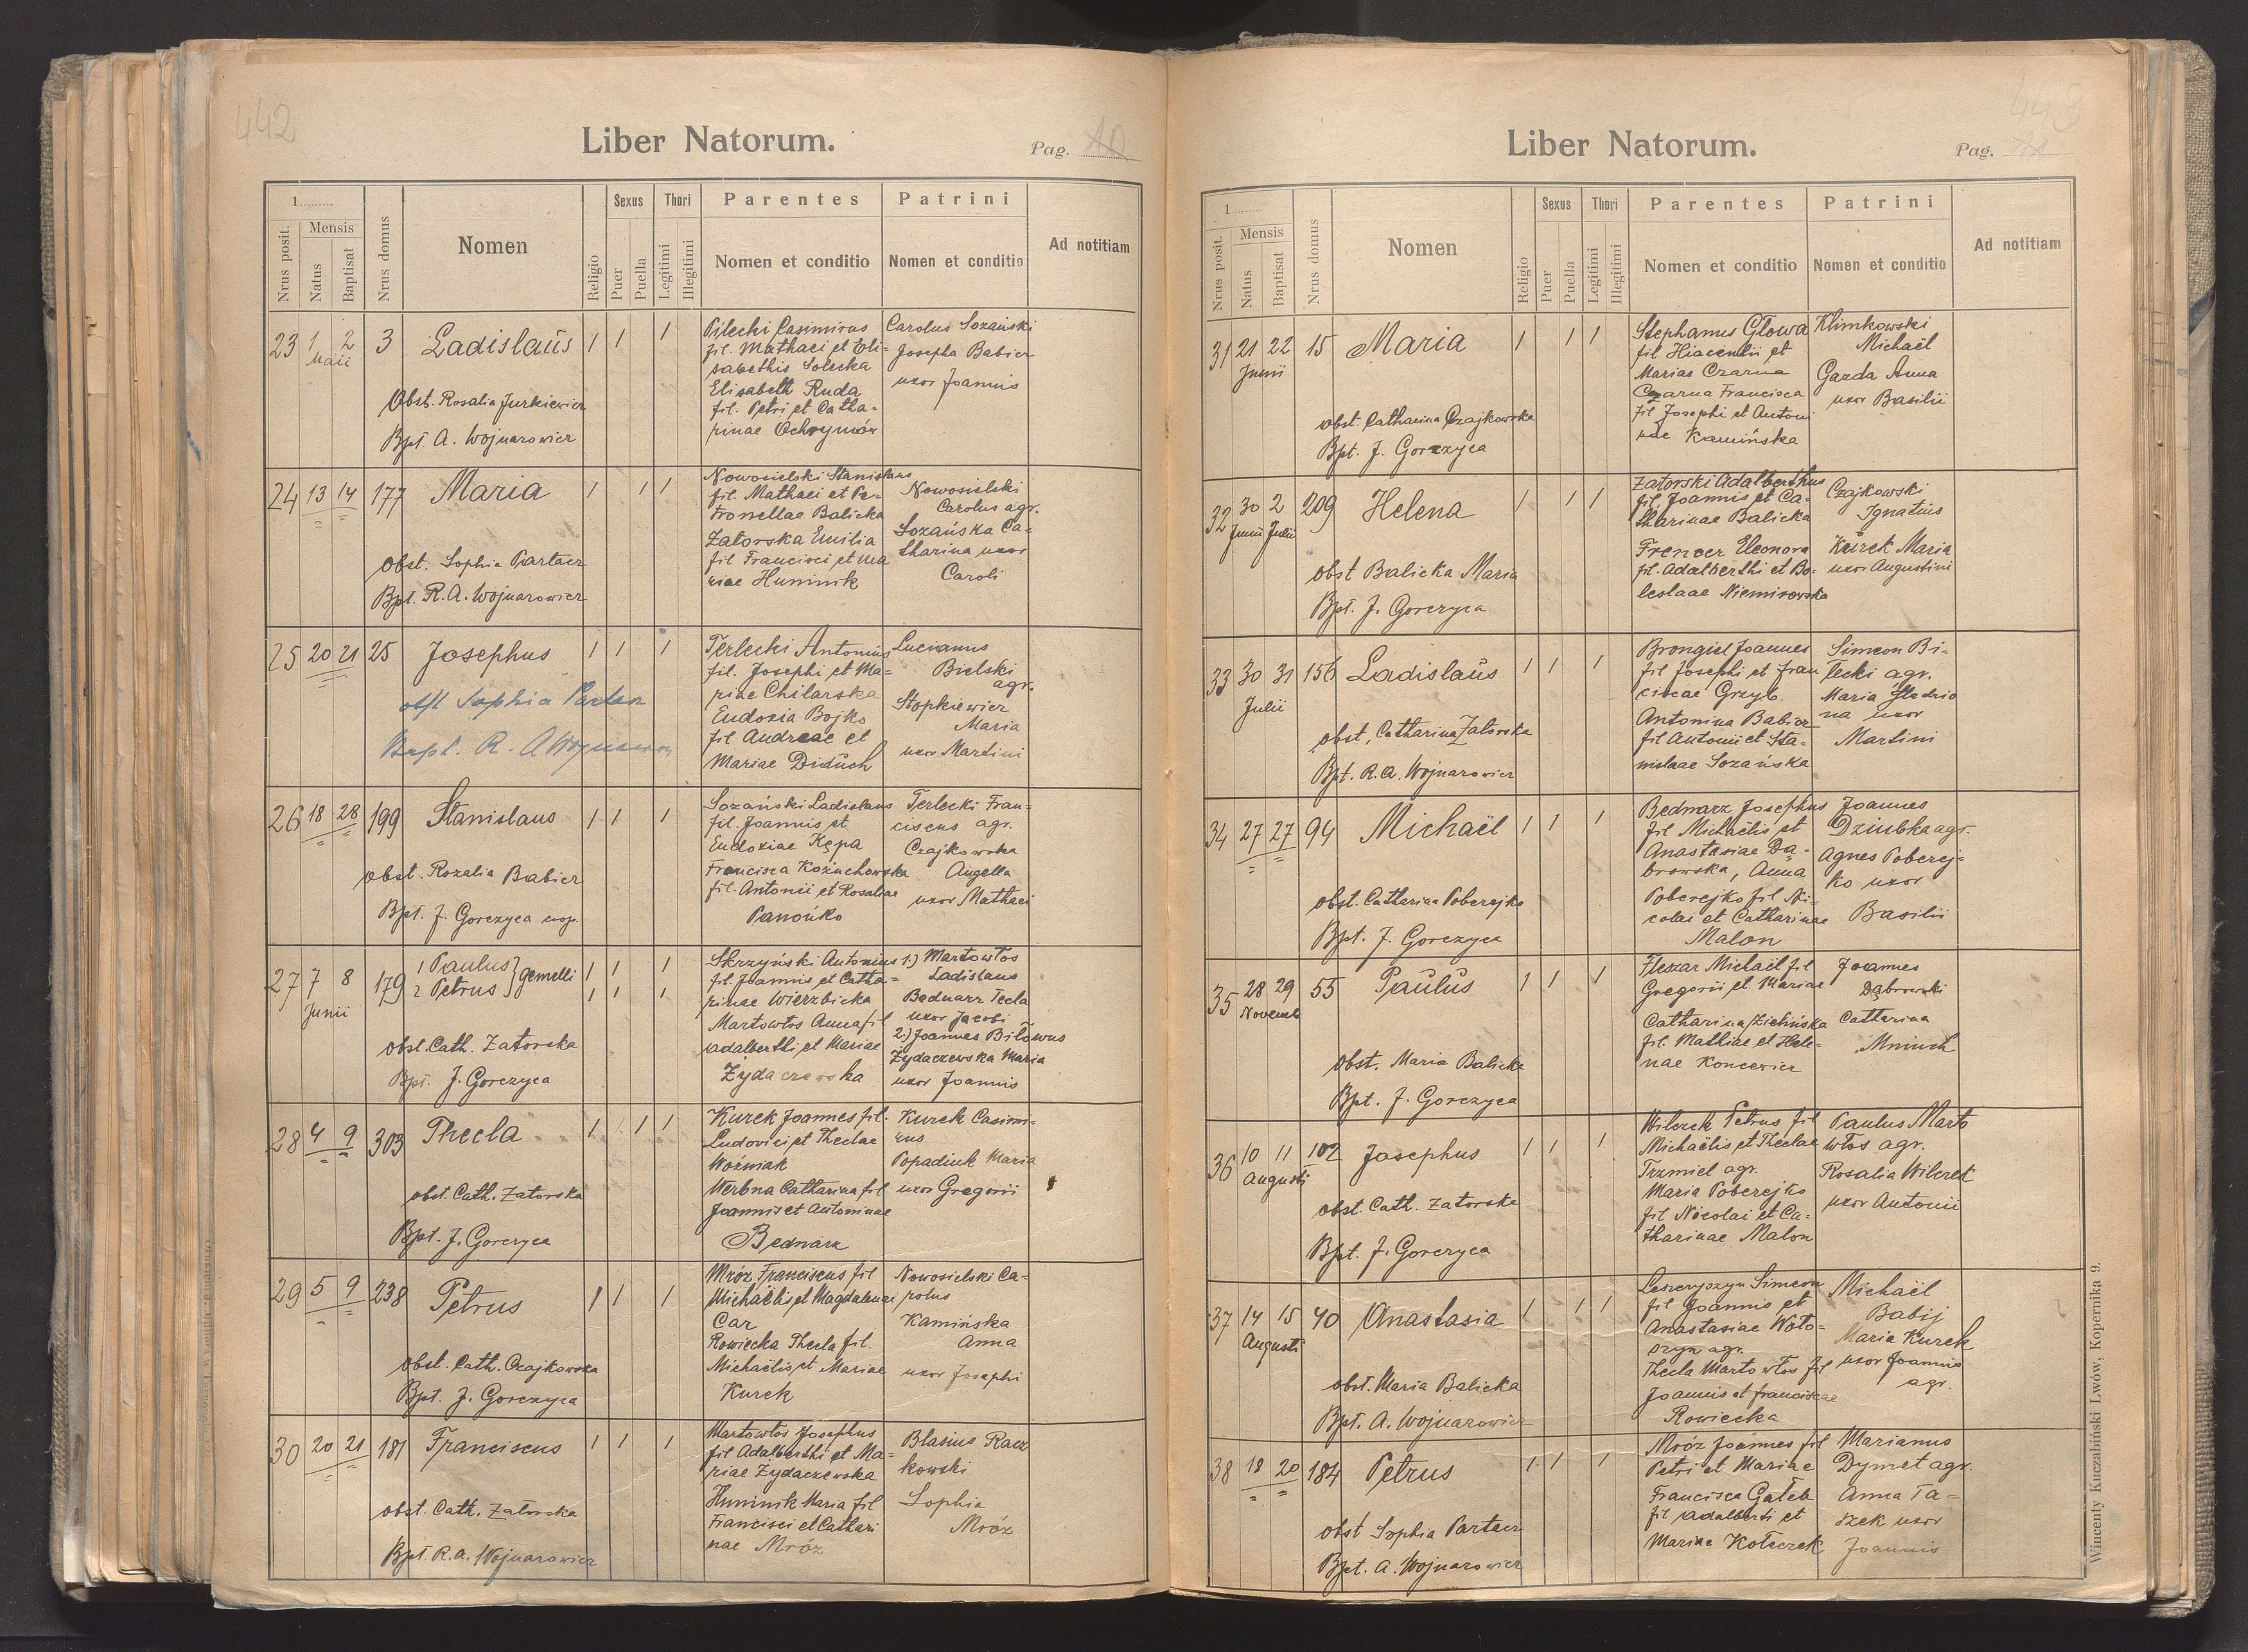 442
Liber Natorum.
Pag. 10
1
Nrus posit.
Mensis
Natus
Baptisat
Nrus domus
Nomen
Religio
Sexus
Puer
Puella
Thori
Legitimi
Illegitimi
Parentes
Nomen et conditio
Patrini
Nomen et conditio
Ad notitiam
23 1 2 3 Ladislaus 1 1 1
Maii
Obst. Rosalia Jurkiewicz
Bpt. A. Wojnarowicz
Pilecki Casimirus
fil. Mathaei et Eli=
sabethis Solecka
Elisabeth Ruda
fil. Petri et Catha-
rinae Ochrymów
Carolus Sozański
Josepha Babier
uxor Joannis
24 13 14 177 Maria 1 1 1
Obst. Sophia Partacz
Bpt. R. A. Wojnarowicz
Nowosielski Stanislaus
fil. Mathaei et Pe-
tronellae Balicka
Zatorska Emilia
fil Francisci et Ma
riae Huminik
Nowosielski
Carolus agr.
Sozańska Ca=
tharina uxor
Caroli
25 20 21 25 Josephus 1 1 1
obst Sophia Partacz
Bapt. R. A Wojnarowicz
Terlecki Antonius
fil. Josephi et Ma=
riae Chilarska
Eudoxia Bojko
fil Andreae et
Mariae Diduch
Lucianus
Bielski
agr.
Stopkiewicz
Maria
uxor Martini
26 18 28 199 Stanislaus 1 1 1
obst. Rozalia Babier
Bpt. J. Gorczyca coop.
Sozański Ladislaus
fil. Joannis et
Eudoxiae Kępa
Francisca Kożuchowska
fil. Antonii et Rosaliae
Panońko
Terlecki Fran=
ciscus agr.
Czajkowska
Angella
uxor Mathaei
27 7 8 179 1 Paulus 2 Petrus } gemelli 1 1 1
Junii 1 1 1
obst. Cath. Zatorska
Bpt. J. Gorczyca
Skrzyński Antonius
fil. Joannis et Catha=
rinae Wierzbicka
Martowłos Anna fil
Adalberthi et Mariae
Zydaczewska
1.) Martowłos
Ladislaus
Bednarz Tecla
uxor Jacobi
2.) Joannes Biłowus
Zydaczewska Maria
uxor Joannis
28 4 9 303 Thecla 1 1 1
obst. Cath. Zatorska
Bpt. J. Gorczyca
Kurek Joannes fil.
Ludovici et Theclae
Woźniak
Werbna Catharina fil
Joannis et Antoninae
Bednarz
Kurek Casimi=
rus
Popadiuk Maria
uxor Gregorii
29 5 9 238 Petrus 1 1 1
obst. Cath. Czajkowska
Bpt. J. Gorczyca
Mróz Franciscus fil
Michaëlis et Magdalenae
Car
Rowiecka Thecla fil.
Michaëlis et Mariae
Kurek
Nowosielski Ca=
rolus
Kamińska
Anna
uxor Josephi
30 20 21 181 Franciscus 1 1 1
obst. Cath. Zatorska
Bpt. R. A. Wojnarowicz
Martowłos Josephus
fil Adalberthi et Ma=
riae Zydaczewska
Huminik Maria fil
Francisci et Cathari
nae Mróz
Blasius Racz
kowski
Sophia
Mróz
443
Liber Natorum.
Pag.
1
Nrus posit.
Mensis
Natus
Baptisat
Nrus domus
Nomen
Religio
Sexus
Puer
Puella
Thori
Legitimi
Illegitimi
Parentes
Nomen et conditio
Patrini
Nomen et conditio
Ad notitiam
31 21 22 15 Maria 1 1 1
Junii
obst. Catharina Czajkowska
Bpt. J. Gorczyca
Stephanus Głowa
fil Hiacentii et
Mariae Czarna
Czarna Francisca
fil Josephi et Antoni
nae Kamińska
Klimkowski
Michaël
Gazda Anna
uxor Basilii
32 30 2 209 Helena 1 1 1
Junii Julii
obst Balicka Maria
Bpt. J. Gorczyca
Zatorski Adalberthus
fil. Joannis et Ca-
tharinae Balicka
Frencer Eleonora
fil. Adalberthi et Bo-
leslaae Niemirowska
Czajkowski
Ignatius
Kurek Maria
uxor Augustini
33 30 31 156 Ladislaus 1 1 1
Julii
obst, Catharina Zatorska
Bpt. R. A. Wojnarowicz
Brongiel Joannes
fil Josephi et Fran
ciscae Grzyb.
Antonina Babier
fil Antonii et Sta=
nislaae Sozańska
Simeon Bi-
lecki agr.
Maria
na uxor
Martini
34 27 27 94 Michaël 1 1 1
obst. Catharina Poberejko
Bpt. J. Gorczyca
Bednarz Josephus
fil Michaëlis et
Anastasiae Dą-
browska, Anna
Poberejko fil Ni-
colai et Catharinae
Malon
Joannes
Dziubka agr.
Agnes Poberej=
ko uxor
Basilii
35 28 29 55 Paulus 1 1 1
Novemb
Obst. Maria Balicka
Bpt. J. Gorczyca
Fleszar Michaël fil
Gregorii et Mariae
Catharina Zielińska
fil. Mathiae et Hele-
nae Koncewicz
Joannes
Dąbrowski
Catharina
Mniuch
36 10 11 102 Josephus 1 1 1
Augusti
obst. Cath. Zatorska
Bpt. J. Gorczyca
Wilczek Petrus fil
Michaëlis et Theclae
Trzmiel agr.
Maria Poberejko
fil Nicolai et Ca-
tharinae Malon
Paulus Marto
włos agr.
Rosalia Wilczek
uxor Antonii
37 14 15 40 Anastasia 1 1 1
Augusti
obst. Maria Balicka
Bpt. A. Wojnarowicz
Leszczyszyn Simeon
fil Joannis et
Anastasiae Woło=
szyn agr.
Thecla Martowłos fil
Joannis et Franciscae
Rowiecka
Michaël
Babij
Maria Kurek
uxor Joannis
agr.
38 18 20 184 Petrus 1 1 1
obst Sophia Partacz
Bpt. A. Wojnarowicz
Mróz Joannes fil
Petri et Mariae
Francisca Gałeb
fil Adalberti et
Mariae Kołeczek
Marianus
Dymet agr.
Anna Ta=
szek uxor
Joannis
Wincenty Kuczabiński Lwów, Kopernika 9.